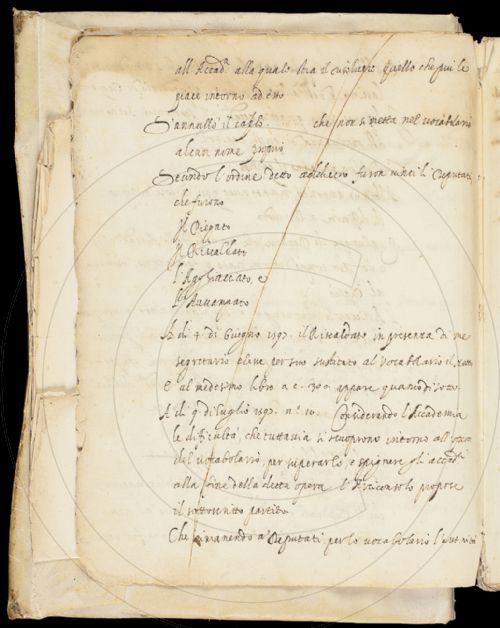 all Accad. alla quale stia il risolvere quello che più le
piace intorno ad esso
S'annullò il capo. che non si metta nel vocabolario
alcun nome proprio
Secondo l'ordine detto furon vinti li Deputati
che furono
Il Ripieno
Il Riscaldato
l'Agghiacciato, e
A dì 4 di Giugno 1597. il Riscaldato in presenza di me
segretario elesse per suo sustituto al vocabolario il
E al medesimo libro a c. 300 appare quanto di sotto.
A dì 9 di luglio 1597. n.º 10. Considerando l'Accademia
le difficultà, che tuttavia si scuoprono intorno all'
del vocabolario, per superarle, e spignere gli accad.
alla fine della detta opera l'Arciconsolo propose
il sottoscritto partito
Che rimanendo a' Deputati per lo vocabolario l'